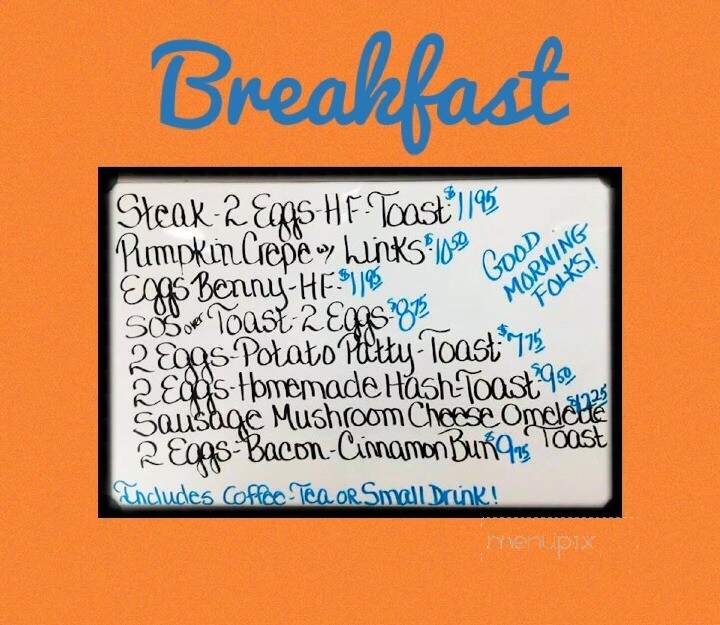 Breakfast
Steak-2 Eggs-HF-Toast $11.95
Pumpkin Crepe w/ Links $10.50
Eggs Benny-HF-$11.95
SOS over Toast-2 Eggs-$8.75
2 Eggs-Potato Patty-Toast $7.75
2 Eggs-Homemade Hash-Toast $9.50
Sausage Mushroom Cheese Omelette $12.25
Toast
2 Eggs-Bacon-Cinnamon Bun $9.75
GOOD
MORNING
FOLKS!
Includes Coffee-Tea OR Small Drink!
menupix